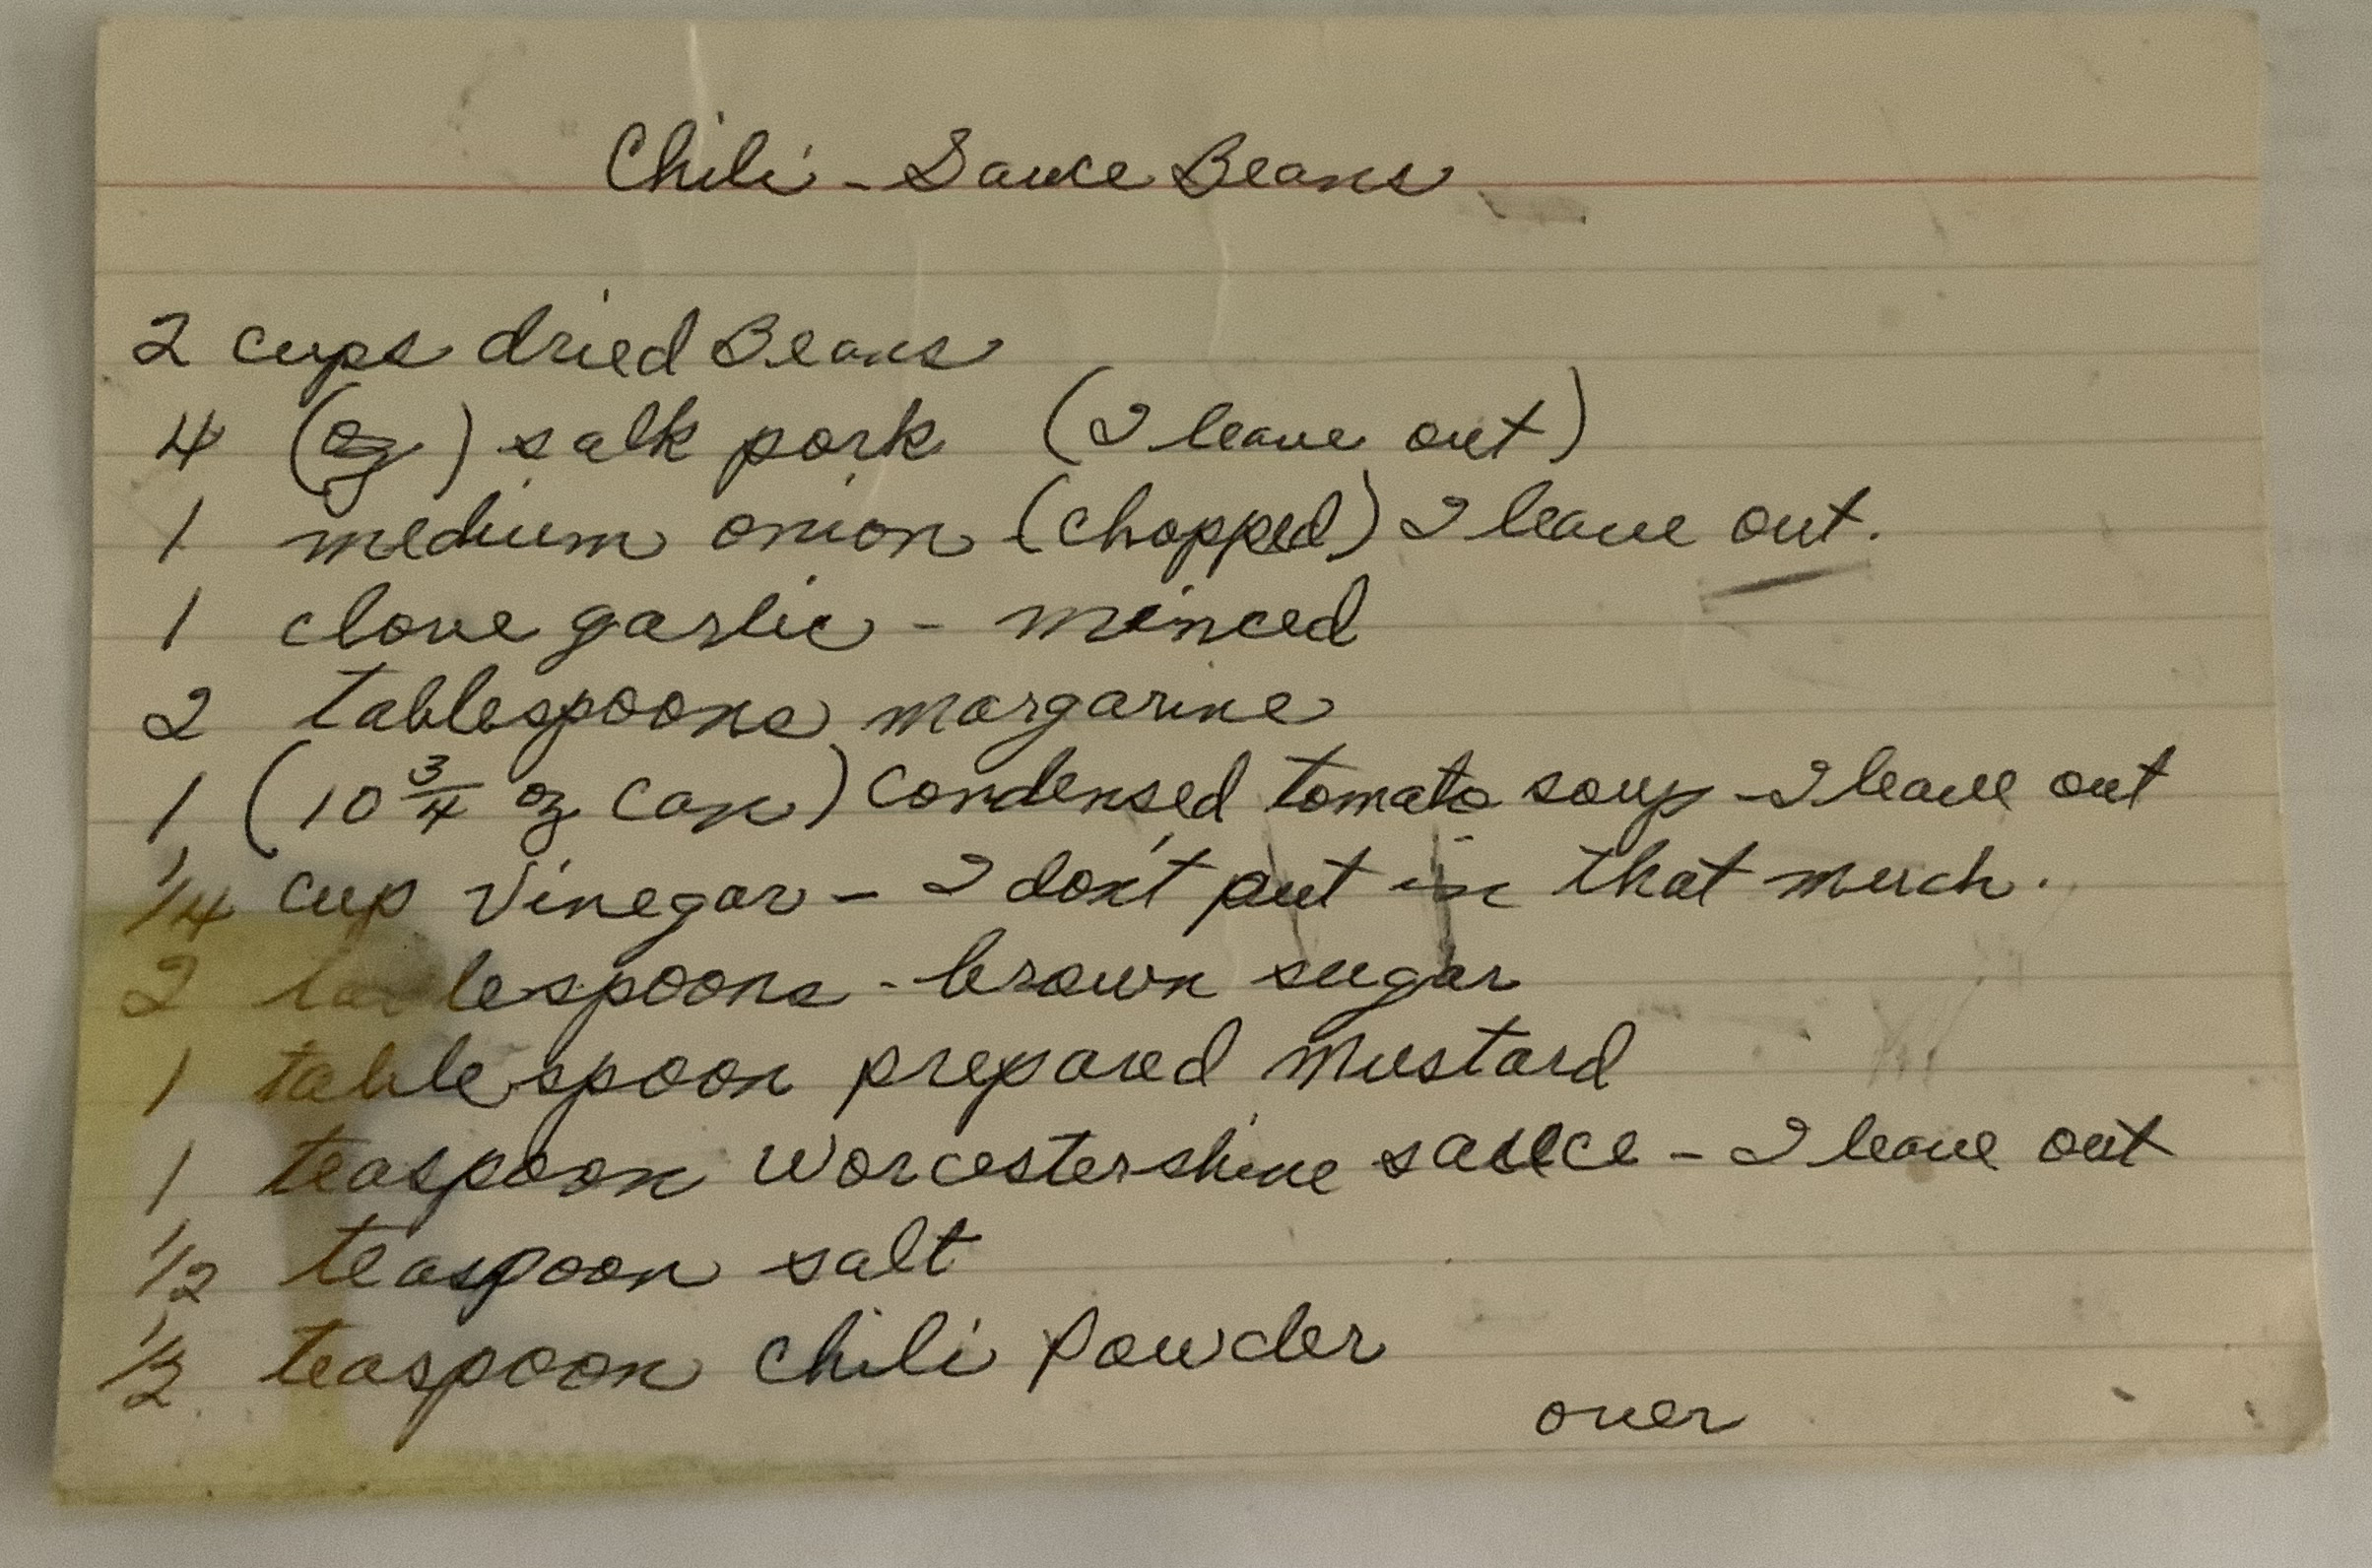 Chili - Sauce Beans
2 cups dried Beans
4 (oz) salk pork (I leave out)
1 medium onion (chopped) I leave out.
1 clove garlic - minced
2 tablespoons margarine
1 (10 3/4 oz can) condensed tomato soup - I leave out
1/4 cup vinegar - I don't put in that much.
2 tablespoons - brown sugar
1 tablespoon prepared mustard
1 teaspoon Worcestershire sauce - I leave out
1/2 teaspoon salt
1/2 teaspoon chili powder
over